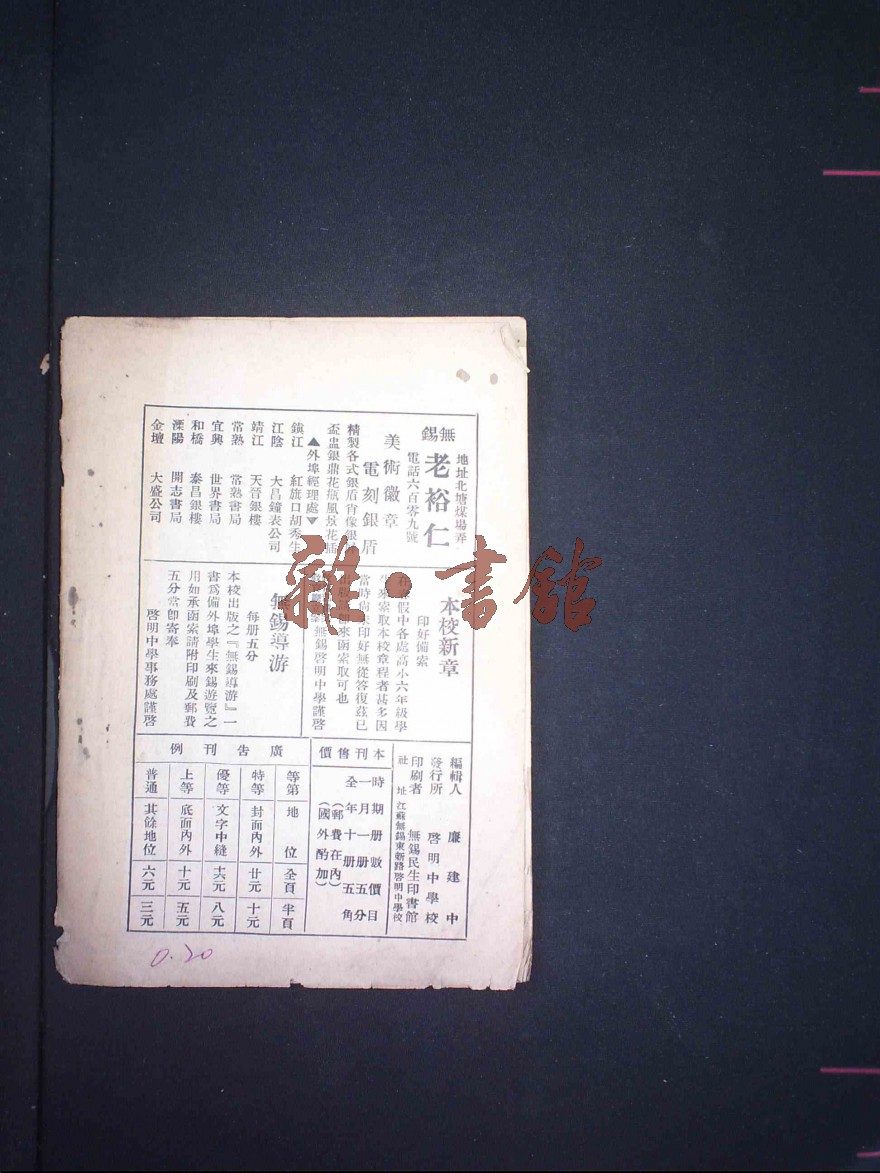 無錫
老裕仁
地址北塘煤場弄
電話六百零九號
美術徽章
電刻銀盾
精製各式銀盾肖像銀
盃盅銀鼎花瓶風景花插
▲外埠經理處▼
鎮江 紅旗口胡秀生
江陰 大昌鐘表公司
靖江 天晉銀樓
常熟 常熟書局
宜興 世界書局
和橋 泰昌銀樓
溧陽 開志書局
金壇 大盛公司
本校新章
印好備索
假中各處高小六年級學
來索取本校章程者甚多因
當時尚未印好無從答復茲已
來函索取可也
無錫啓明中學謹啓
無錫導游
每册五分
本校出版之『無錫導游』一
書爲備外埠學生來錫遊覽之
用如承函索請附印刷及郵費
五分當卽寄奉
啓明中學事務處謹啓
編輯人 廉建中
發行所 啓明中學校
印刷者 無錫民生印書館
社址 江蘇無錫東新路啓明中學校
本刊售價
時期 册數 價目
一月 一册 五分
全年 十册 五角
(郵費在內)
(國外酌加)
廣告刊例
等第 地位 全頁 半頁
特等 封面內外 廿元 十元
優等 文字中縫 十六元 八元
上等 底面內外 十元 五元
普通 其餘地位 六元 三元
0.20
雜·書館